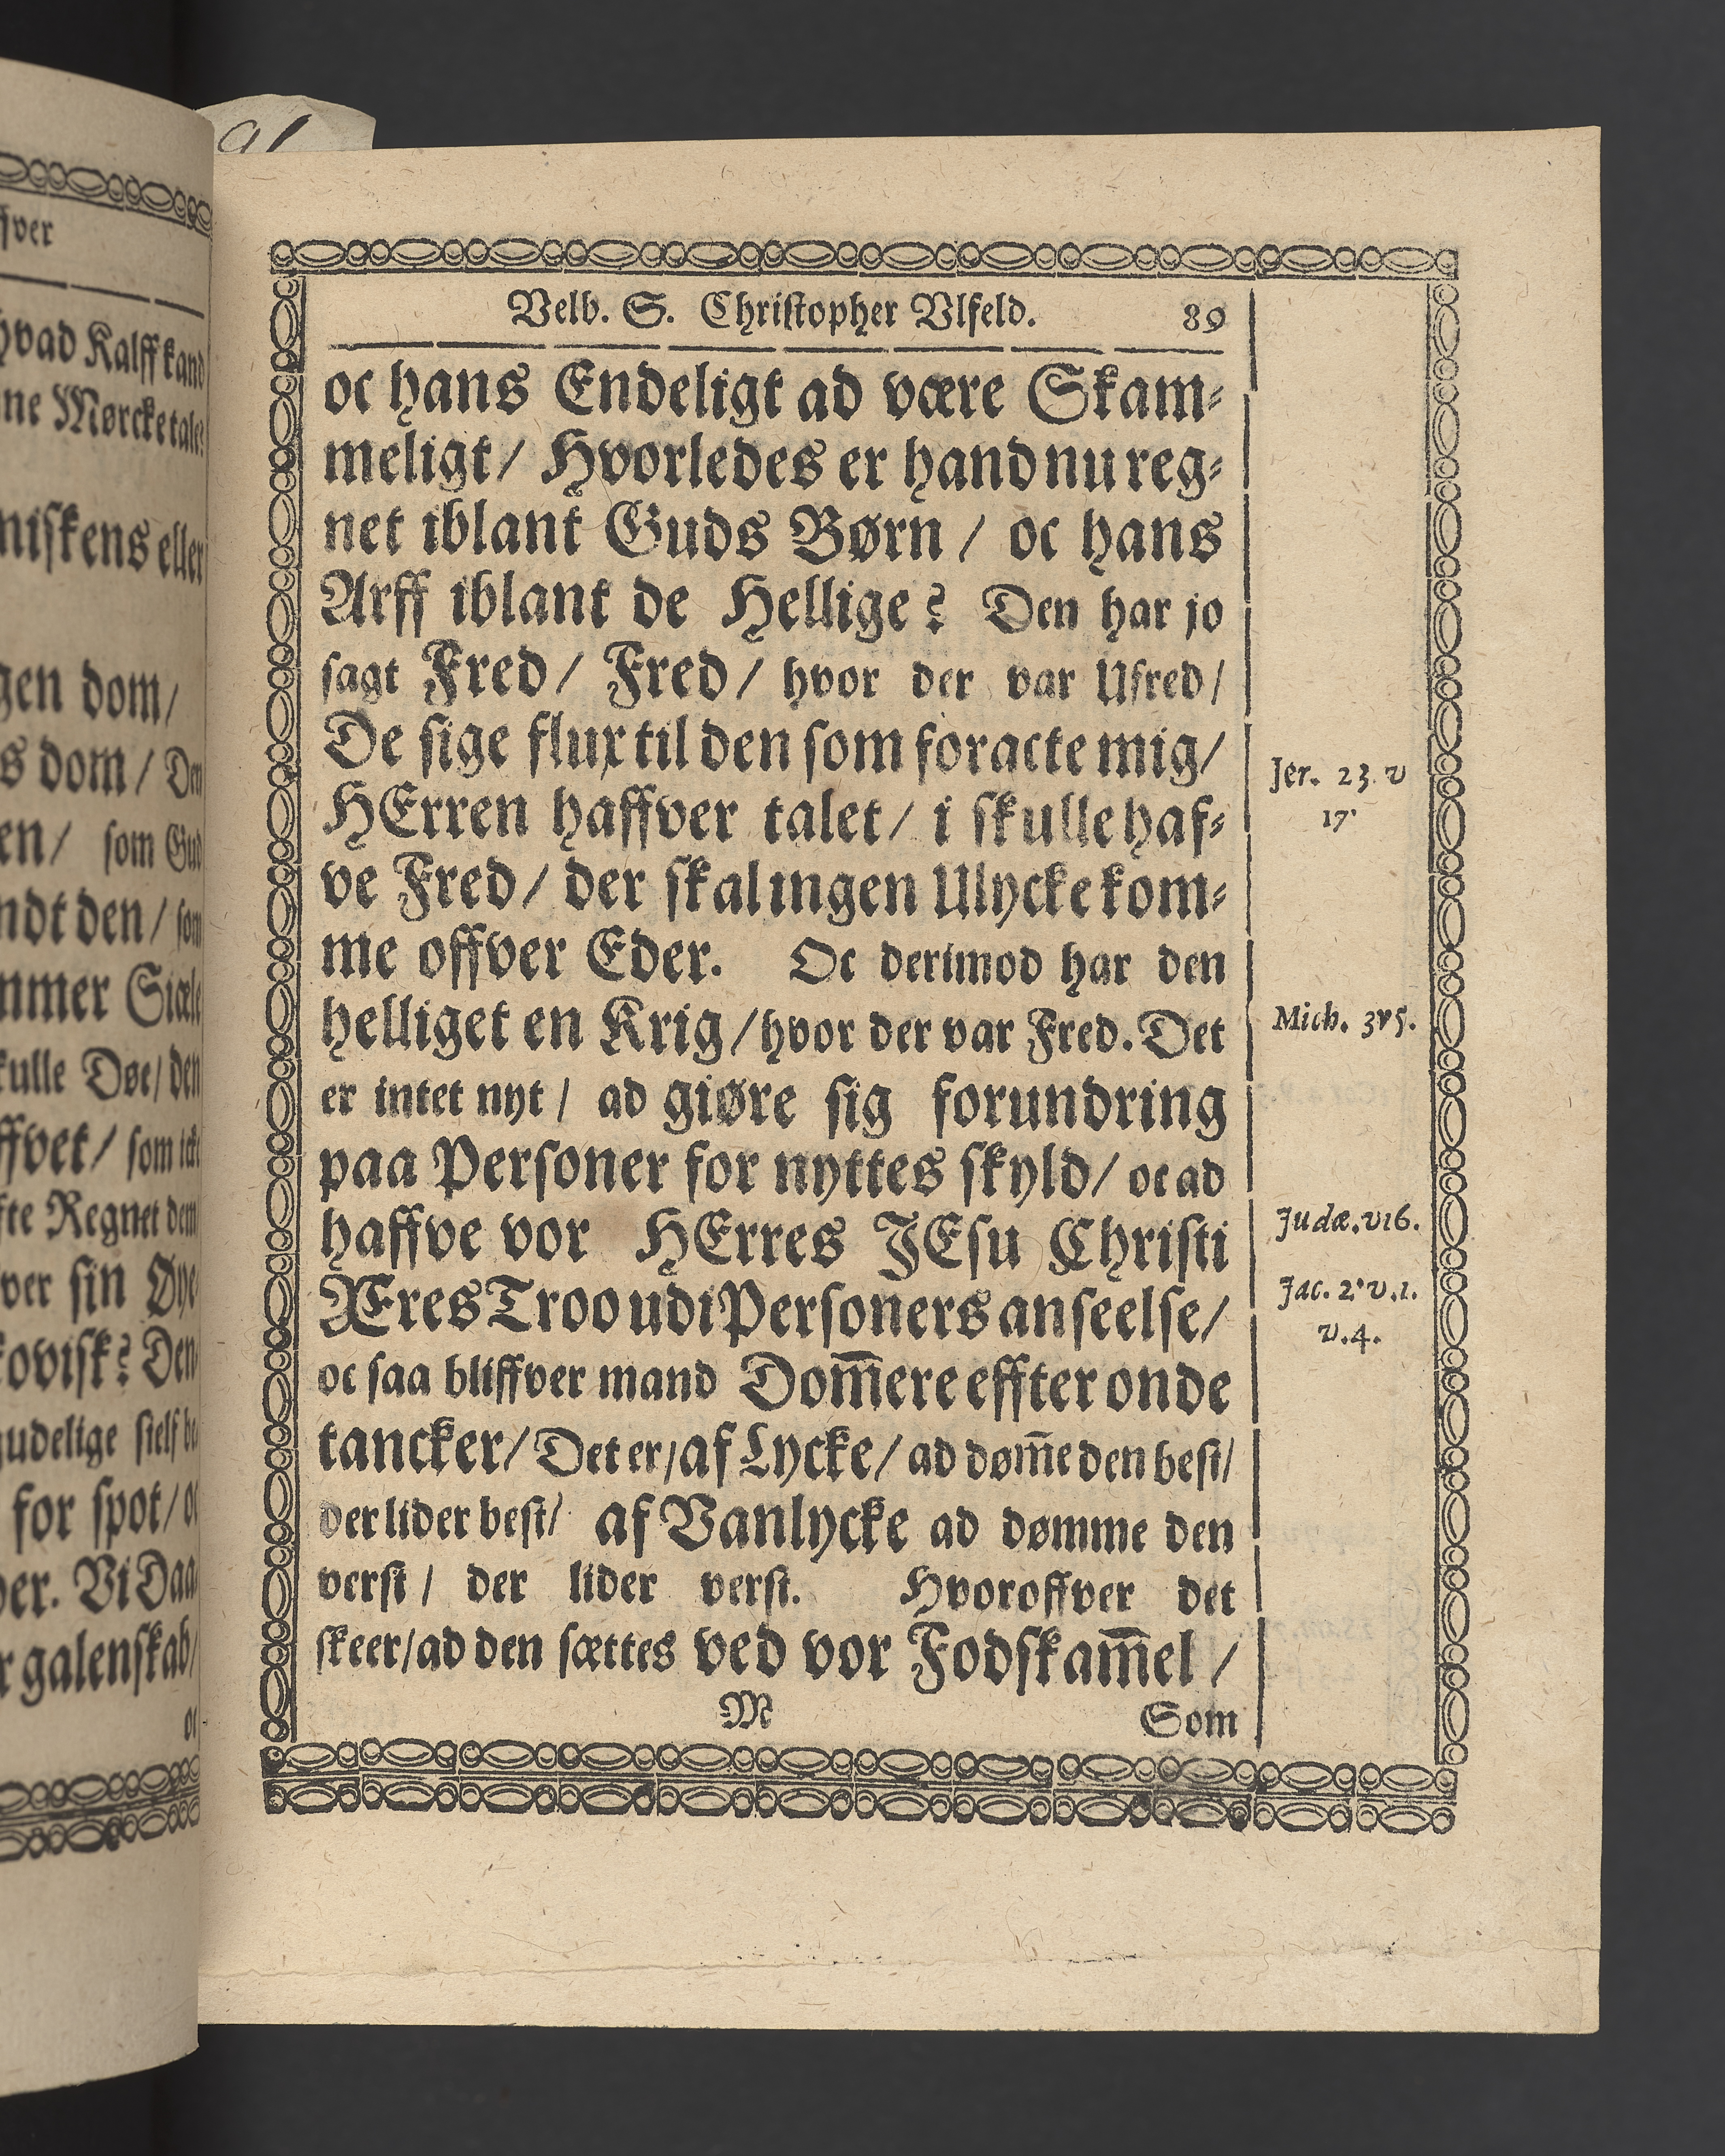 ffver
hvad Kalff kand
ne Mørcke tale?
niskens eller
gen dom/
s dom/ Den
en/ som Gud
ndt den/ som
mmer Siæle
kulle Døe/ den
ffvet/ som icke
fte Regnet dem
ver sin Øye
kovisk? Den
gudelige sielf be
for spot/ oc
ver. Vi Daa
r galenskab/
oc
91
Velb. S. Christopher Vlfeld. 89
oc hans Endeligt ad være Skam⸗
meligt/ Hvorledes er hand nu reg⸗
net iblant Guds Børn/ oc hans
Arff iblant de Hellige? Den har jo
sagt Fred/ Fred/ hvor der var Ufred/
De sige flux til den som foracte mig/
HErren haffver talet/ i skulle haf⸗
ve Fred/ der skal ingen Ulycke kom⸗
me offver Eder. Oc derimod har den
helliget en Krig/ hvor der var Fred. Det
er intet nyt/ ad giøre sig forundring
paa Personer for nyttes skyld/ oc ad
haffve vor HErres JEsu Christi
Æres Troo udi Personers anseelse/
oc saa bliffver mand Dom̅ere effter onde
tancker/ Det er/ af Lycke/ ad døm̅e den best/
der lider best/ af Vanlycke ad dømme den
verst/ der lider verst. Hvoroffver det
skeer/ ad den sættes ved vor Fodskam̅el/
M Som
Jer. 23. v
17.
Mich. 3 v 5.
Judæ. v 16.
Jac. 2. v. 1.
v. 4.